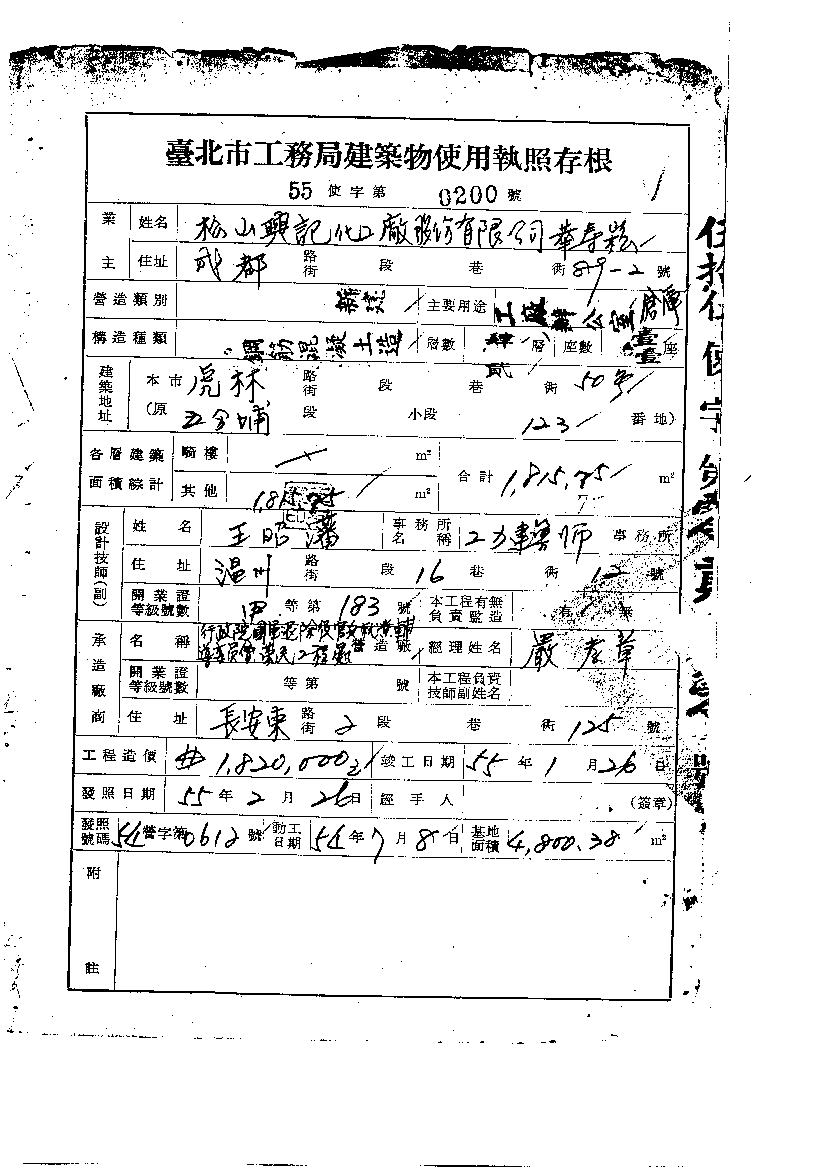 臺北市工務局建築物使用執照存根
55 使字第 0200 號
業主 姓名 松山興記化工廠股份有限公司
住址 成都 路街 段 巷 街 89-2 號
營造類別 新建 主要用途 工廠辦公室倉庫
構造種類 鋼筋混凝土造 層數 肆貳 層 座數 壹壹 座
建築地址 本市 虎林 路街 段 巷 街 50号
(原 五分埔 段 小段 123 番地)
各層建築面積綜計 騎樓 m² 合計 1,815.75 m²
其他 1,815.75 m²
設計技師(副) 姓名 王昭藩 事務所名稱 建築師 事務所
住址 温州 路街 段 16 巷 街 12 號
開業證等級號數 甲 等第 183 號 本工程有無負責監造 有 無
承造廠商 名稱 行政院國軍退除役官兵就業輔導委員會榮民工程處 營造廠 經理姓名 嚴孝章
開業證等級號數 等第 號 本工程負責技師副姓名
住址 長安東 路街 2 段 巷 街 125 號
工程造價 1,820,000元 竣工日期 55 年 1 月 26 日
發照日期 55 年 2 月 26 日 經手人 (簽章)
發照號碼 54 營字第 0612 號 動工日期 54 年 7 月 8 日 基地面積 4,800.38 m²
附註